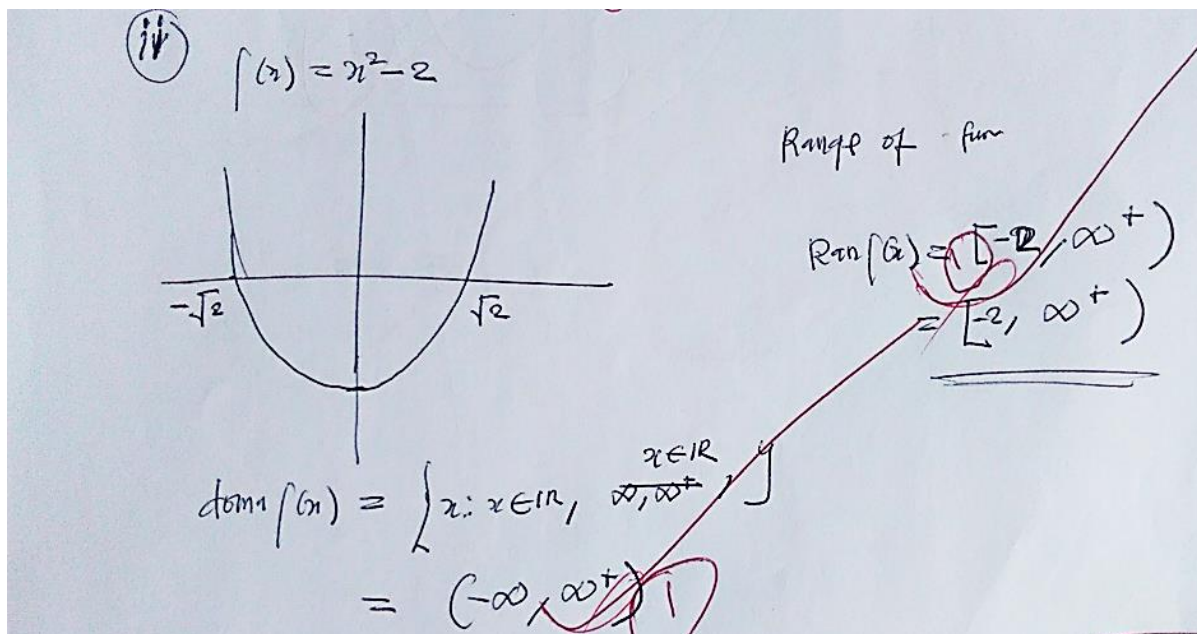 iv
f(x) = x² - 2
-√2 √2
Range of fun
Ran f(x) = [-2, ∞⁺)
1
= [-2, ∞⁺)
dom f(x) = {x: x ∈ IR, x ∈ IR
∞, ∞⁺, }
= (-∞, ∞⁺) 1